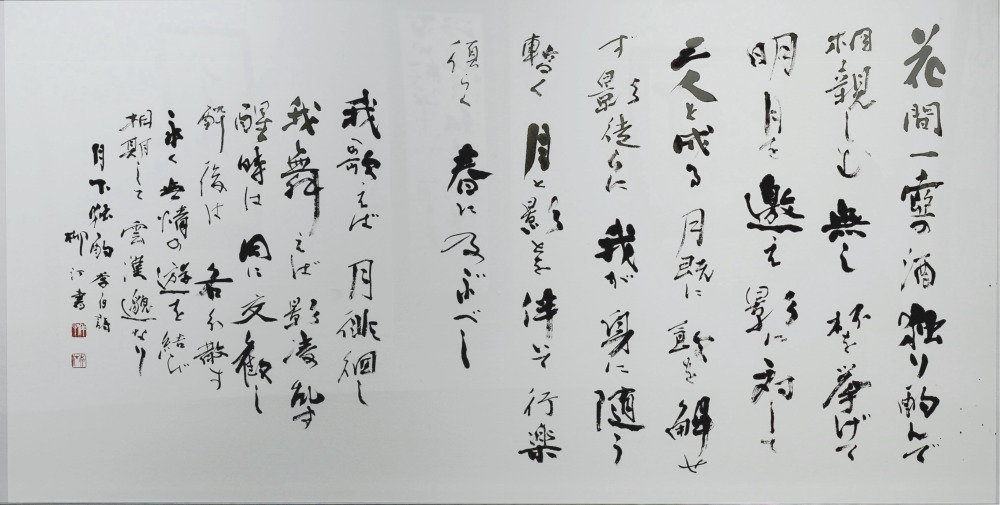 花間一壺の酒独り酌んで
相親しむ無し杯を挙げて
明月を邀え影に対して
三人と成る月既に飲を解せ
ず影徒らに我が身に随う
暫く月と影とを伴いて行楽
須らく春に及ぶべし
我歌えば月徘徊し
我舞えば影凌乱す
醒時は同に交歓し
酔後は各分散す
永く無情の遊を結び
相期して雲漢邈なり
月下独酌 李白詩
柳汀書